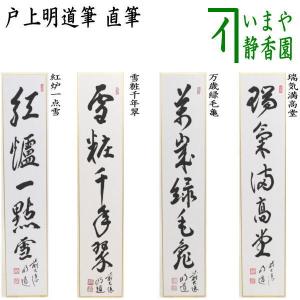 戸上明道筆 直筆
いまや
静香園
紅炉一点雪
紅爐一點雪
雪粧千年翠
雪粧千年翠
万歳緑毛亀
萬歳緑毛亀
瑞気満高堂
瑞氣満高堂